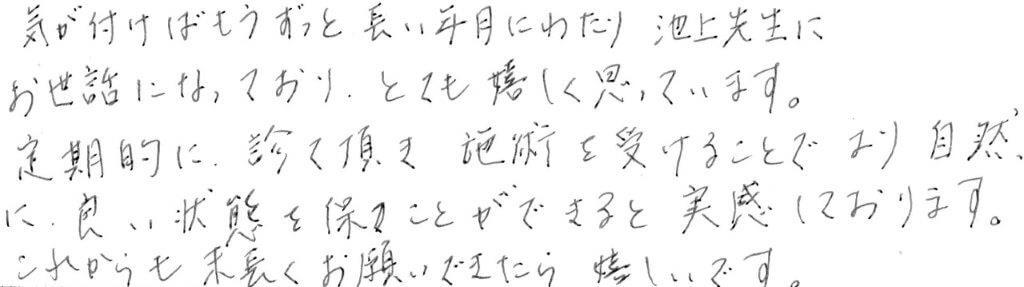 気が付けばもうずっと 長い年月にわたり 池上先生に
お世話になっており、とても 嬉しく思っています。
定期的に、診て頂き 施術を受けることで より自然、
に、良い状態を保つことができると 実感しております。
これからも 末長くお願いできたら 嬉しいです。